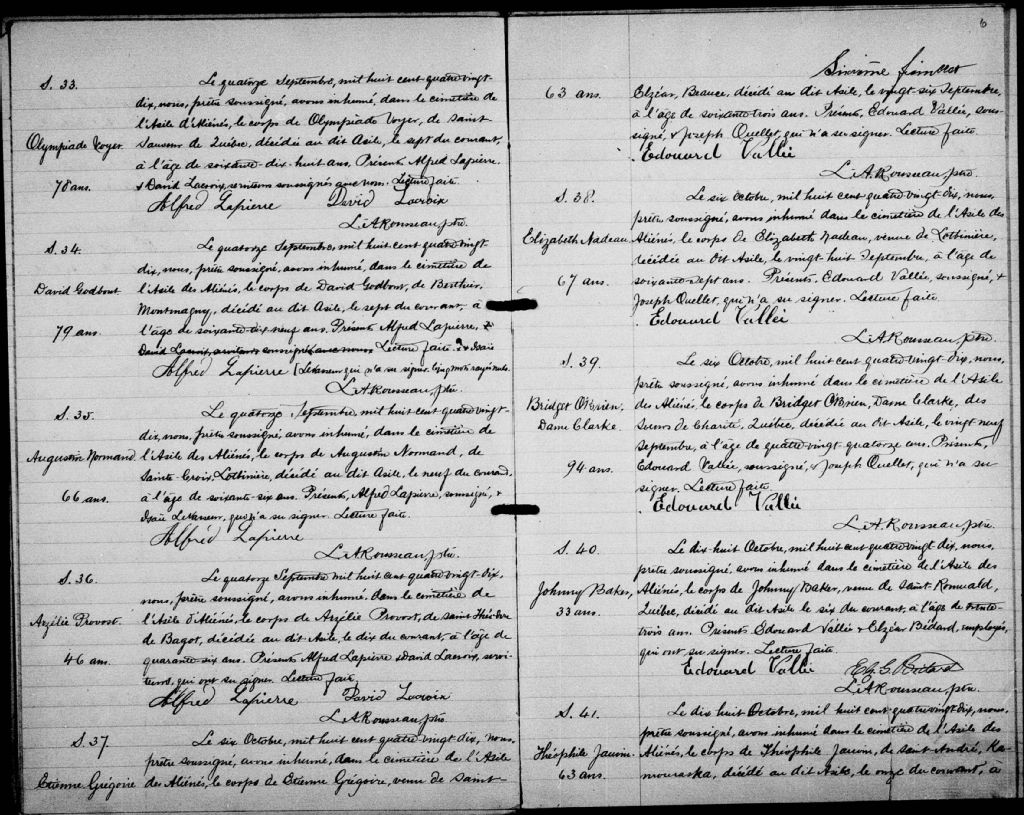 S. 33.
Le quatorze Septembre, mil huit cent quatre vingt-
dix, nous, prêtre soussigné, avons inhumé, dans le cimetière de
l'Asile d'Aliénés, le corps de Olympiade Voyer, de Saint
Olympiade Voyer
Sauveur de Québec, décédée au dit Asile, le sept du courant,
à l'âge de soixante dix-huit ans. Présents Alfred Lapierre
78 ans.
& David Lacroix, serviteurs soussignés avec nous. Lecture faite.
Alfred Lapierre David Lacroix
L.A.Rousseau, ptre.
S. 34.
Le quatorze Septembre, mil huit cent quatre vingt
dix, nous, prêtre soussigné, avons inhumé, dans le cimetière de
David Godbout
l'Asile des Aliénés, le corps de David Godbout, de Berthier,
Montmagny, décédé au dit Asile, le sept du courant, à
79 ans.
l'âge de soixante dix neuf ans. Présents Alfred Lapierre, &
David Lacroix, serviteurs soussignés avec nous. Lecture faite. & Isaïe
Alfred Lapierre Levasseur qui n'a su signer. Cinq mots rayés nuls.
L.A.Rousseau, ptre.
S. 35.
Le quatorze Septembre, mil huit cent quatre vingt-
dix, nous, prêtre soussigné avons inhumé, dans le cimetière de
Augustin Normand.
l'Asile des Aliénés, le corps de Augustin Normand, de
Sainte-Croix, Lotbinière, décédé au dit Asile, le neuf du courant,
66 ans.
à l'âge de soixante-six ans. Présents, Alfred Lapierre, soussigné, &
Isaïe Levasseur, qui n'a su signer. Lecture faite.
Alfred Lapierre
L.A.Rousseau, ptre.
S. 36.
Le quatorze Septembre mil huit cent quatre vingt-dix,
nous, prêtre soussigné, avons inhumé, dans le cimetière de
Azélie Provost.
l'Asile d'Aliénés, le corps de Azélie Provost, de Saint Théodore
de Bagot, décédée au dit Asile, le dix du courant, à l'âge de
46 ans.
quarante six ans. Présents Alfred Lapierre & David Lacroix, servi-
teurs, qui ont su signer. Lecture faite
Alfred Lapierre David Lacroix
L.A.Rousseau, ptre
S. 37.
Le six Octobre, mil huit cent quatre vingt dix, nous,
prêtre soussigné, avons inhumé, dans le cimetière de l'Asile
Etienne Grégoire
des Aliénés, le corps de Etienne Grégoire, venu de Saint-
6
Sixième feuillet
63 ans.
Elzéar, Beauce, décédé au dit Asile, le vingt six Septembre,
à l'âge de soixante trois ans. Présents, Edouard Vallée, sous-
signé, & Joseph Ouellet, qui n'a su signer. Lecture faite.
Edouard Vallée
L.A.Rousseau, ptre.
S. 38.
Le six octobre, mil huit cent quatre vingt-dix, nous,
prêtre soussigné, avons inhumé dans le cimetière de l'Asile des
Elizabeth Nadeau
Aliénés, le corps de Elizabeth Nadeau, venue de Lotbinière,
décédée au dit Asile, le vingt huit Septembre, à l'âge de
67 ans.
soixante sept ans. Présents, Edouard Vallée, soussigné, &
Joseph Ouellet, qui n'a su signer. Lecture faite
Edouard Vallée
L.A.Rousseau, ptre.
S. 39.
Le six Octobre, mil huit cent quatre vingt-dix, nous,
prêtre soussigné, avons inhumé dans le cimetière de l'Asile
Bridget O'Brien,
des Aliénés, le corps de Bridget O'Brien, Dame Clarke, des
Dame Clarke.
Soeurs de Charité, Québec, décédée au dit Asile, le vingt neuf
Septembre, à l'âge de quatre vingt quatorze ans. Présents,
94 ans.
Edouard Vallée, soussigné, & Joseph Ouellet, qui n'a su
signer. Lecture faite
Edouard Vallée
L.A.Rousseau, ptre.
S. 40.
Le dix-huit Octobre, mil huit cent quatre vingt dix, nous,
prêtre soussigné, avons inhumé dans le cimetière de l'Asile des
Johnny Baker,
Aliénés, le corps de Johnny Baker, venu de Saint-Romuald,
33 ans.
Québec, décédé au dit Asile le six du courant, à l'âge de trente
trois ans. Présents Edouard Vallée & Elzéar Bédard, employés,
qui ont su signer. Lecture faite
Edouard Vallée Elz. G. Bédard
L.A.Rousseau, ptre.
S. 41.
Le dix huit Octobre, mil huit cent quatre vingt dix, nous,
prêtre soussigné, avons inhumé dans le cimetière de l'Asile des
Théophile Jauvin.
Aliénés, le corps de Théophile Jauvin, de Saint André, Ka-
63 ans.
mouraska, décédé au dit Asile, le onze du courant, à